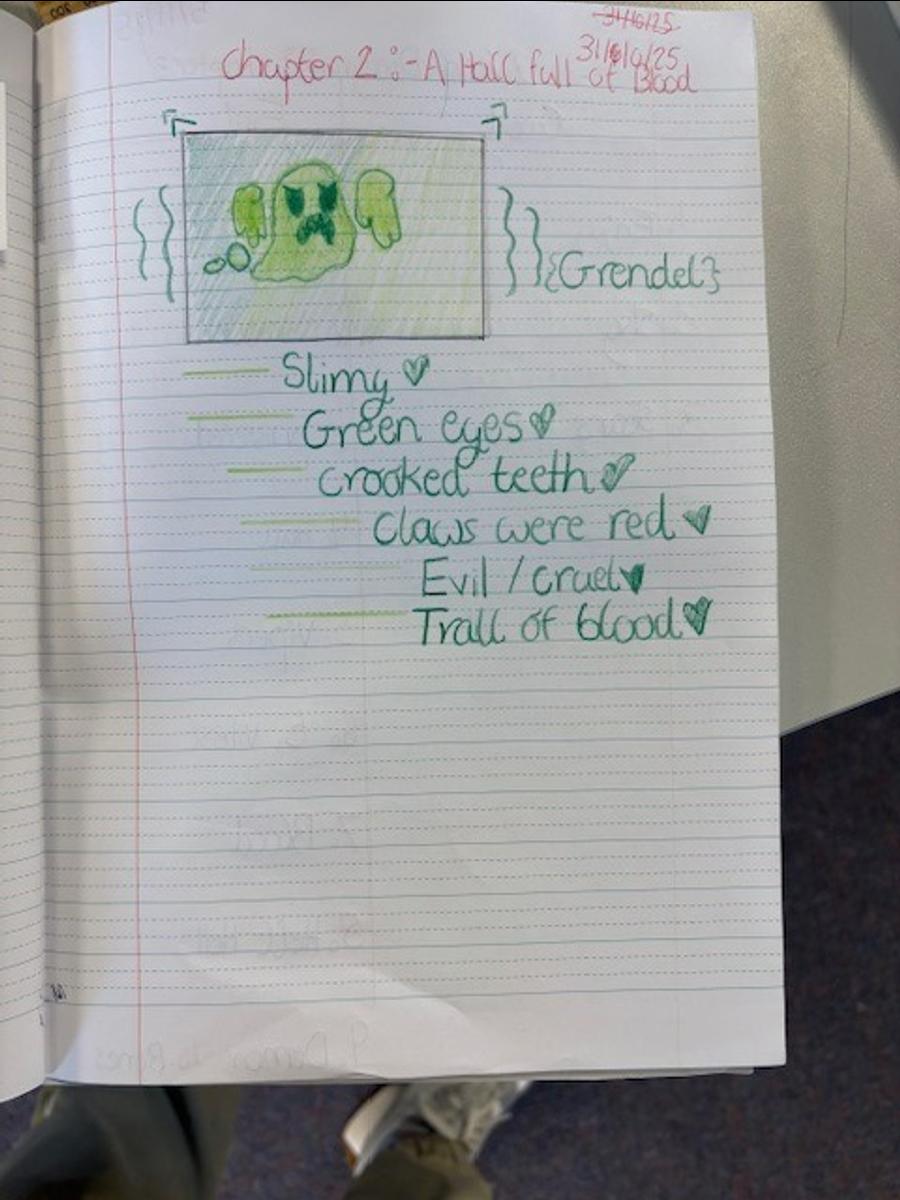 31/6/25
Chapter 2 :- A Hall full of Blood
{Grendel}
Slimy
Green eyes
Crooked teeth
Claws were red
Evil / cruel
Trall of blood